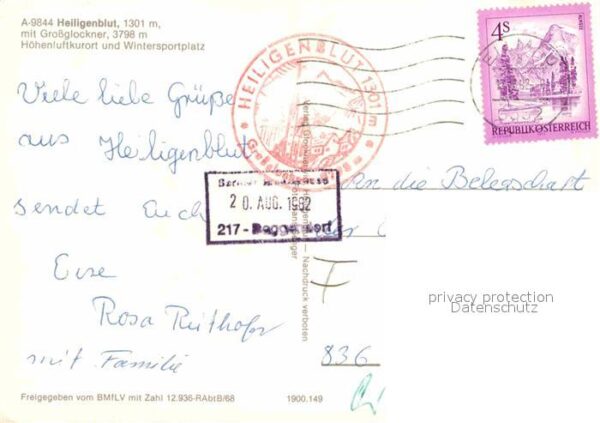 A-9844 Heiligenblut, 1301 m,
mit Großglockner, 3798 m
Höhenluftkurort und Wintersportplatz
HEILIGENBLUT 1301 m
4S
REPUBLIK ÖSTERREICH
Viele liebe Grüße
aus Heiligenblut
sendet Euch
Eure
Rosa
mit Familie
An die Belegschaft
20. AUG. 1982
217 - Deggendorf
Nachdruck verboten
836
privacy protection
Datenschutz
Freigegeben vom BMfLV mit Zahl 12.936-RAbtB/68
1900.149